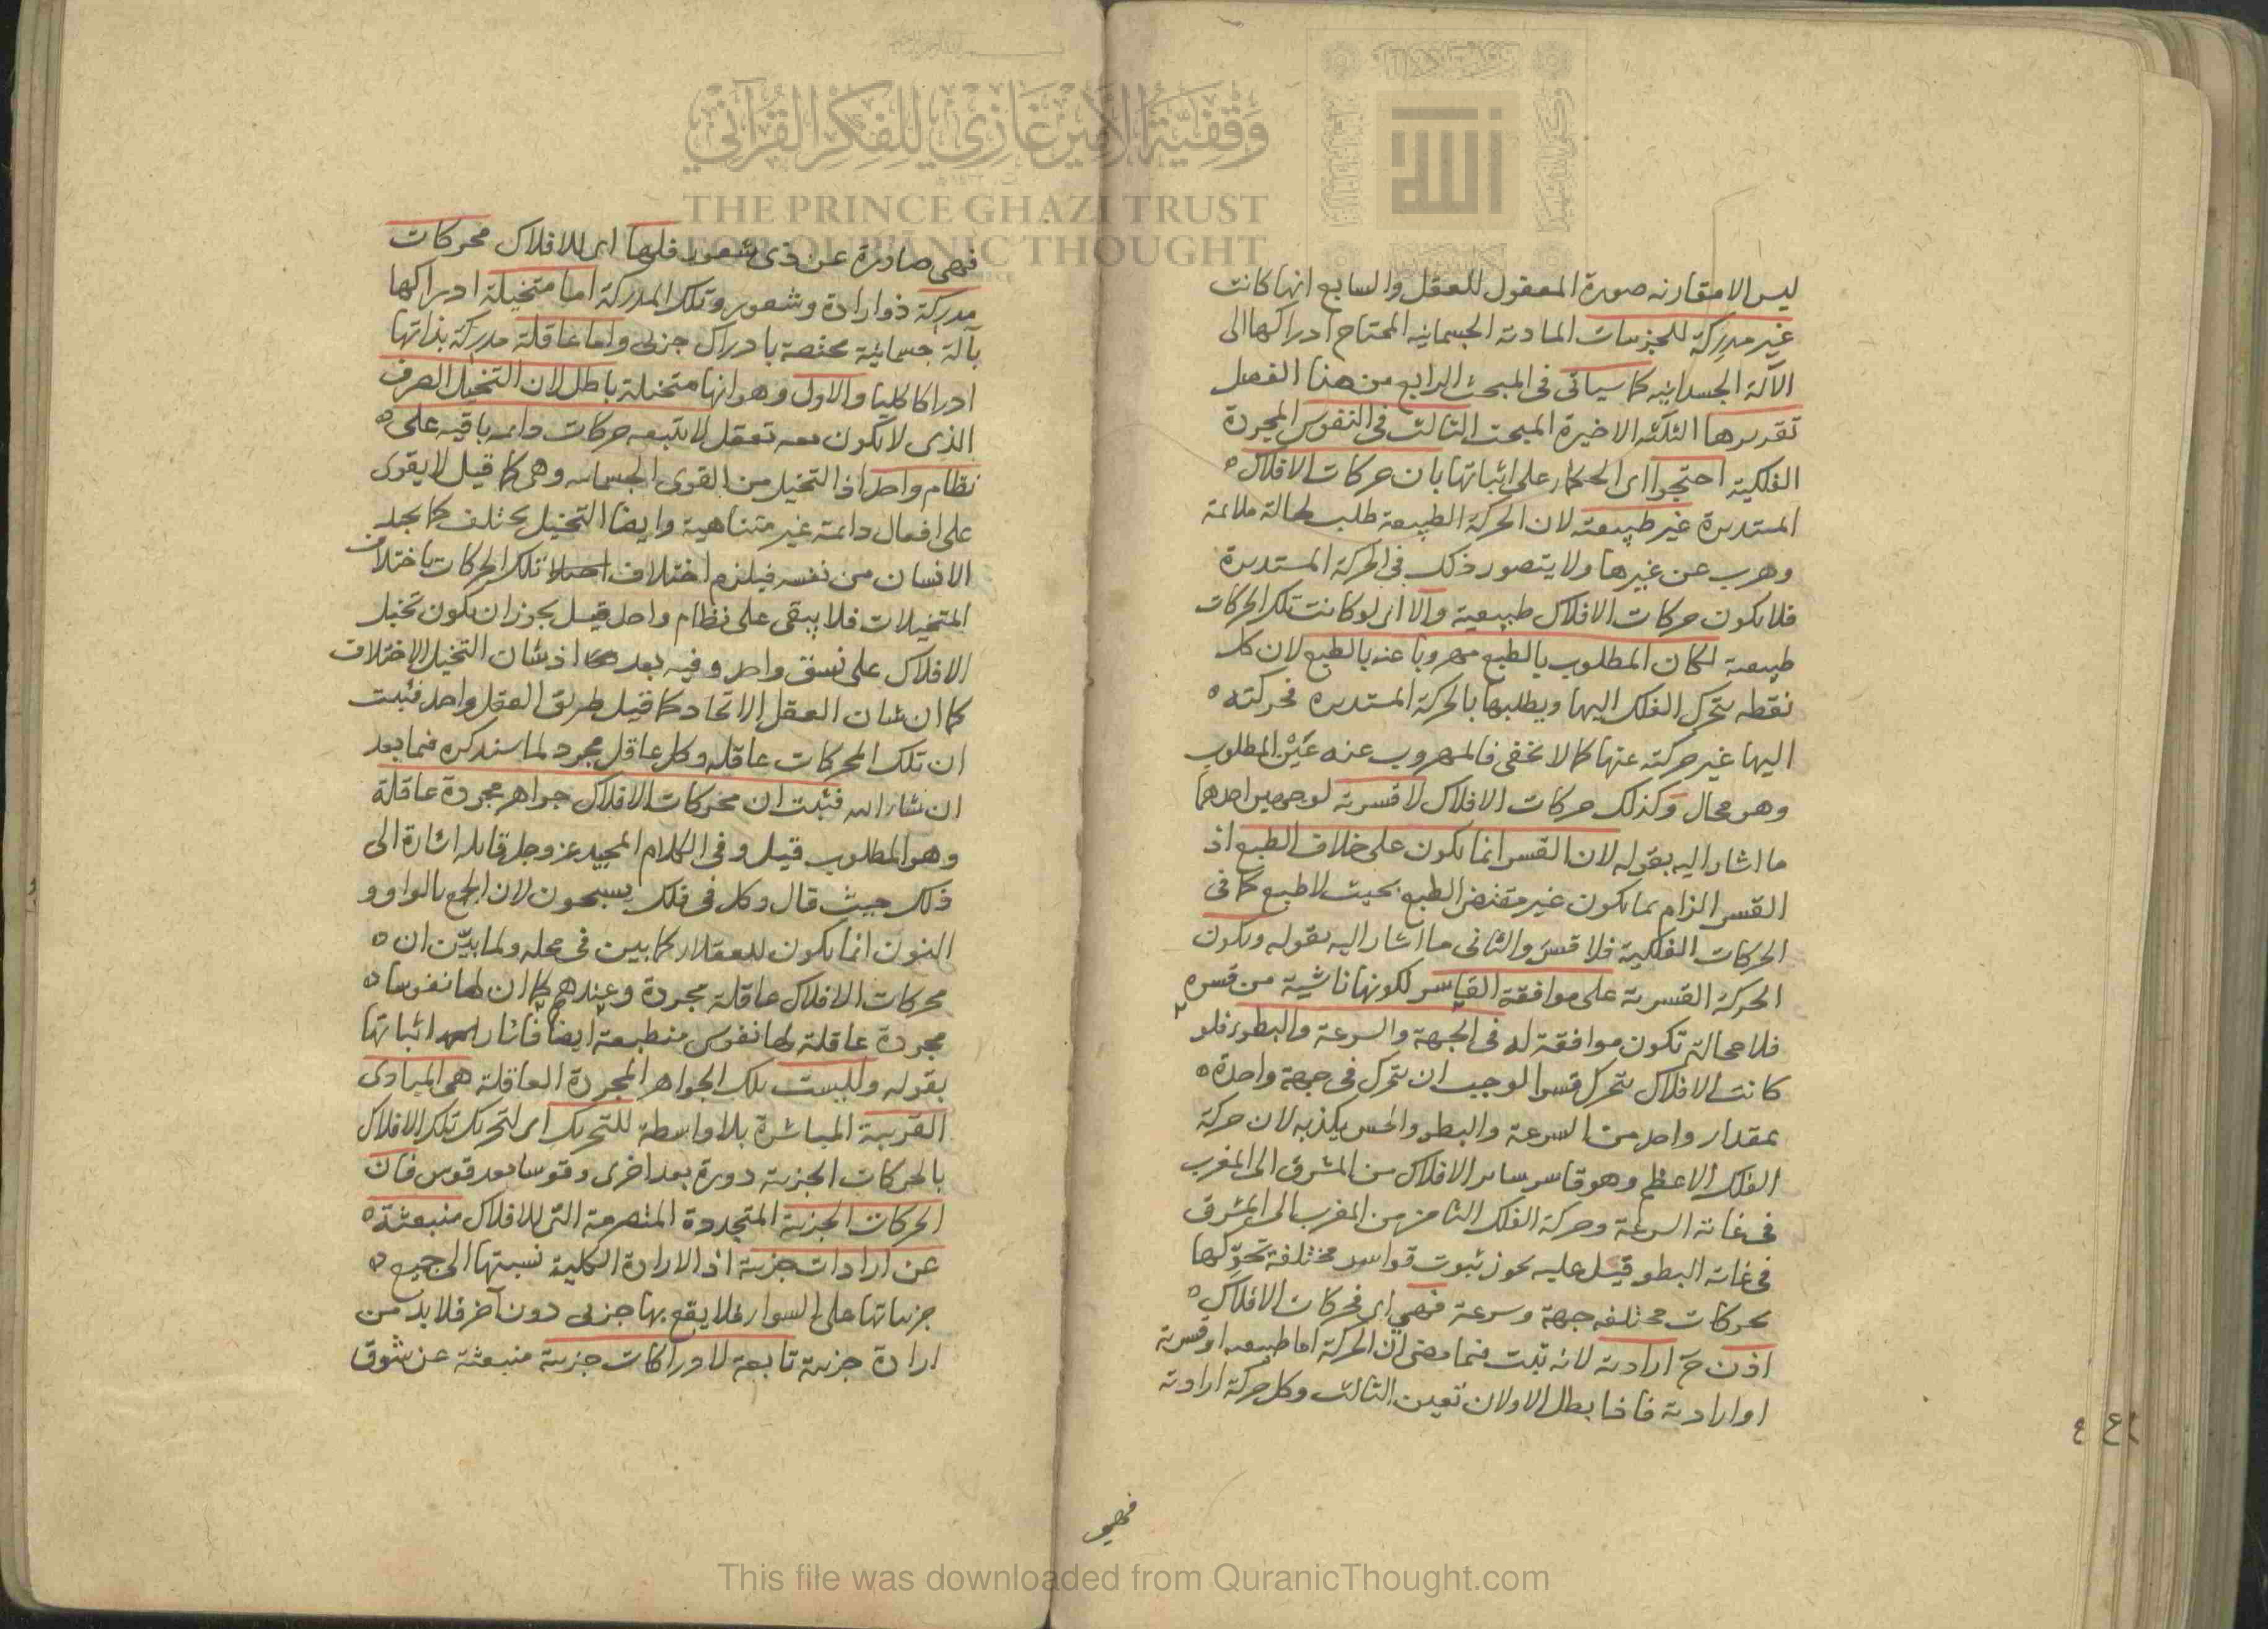 ليس الا مقارنه صورة المعقول للعقل والسابع انها كانت
غير مدركة للجزئيات المادته الجسمانيه المحتاج ادراكها الى
الآلة الجسدانيه كما سيأتى فى المبحث الرابع من هذا الفصل
تقريرها الثلثه الاخيرة المبحث الثالث فى النفوس المجردة
الفلكية احتجوا اى الحكماء على اثباتها بان حركات الافلاك
المستديرة غير طبيعته لان الحركة الطبيعة طلب لحالة ملائمة
وهرب عن غيرها ولا يتصور ذلك فى الحركة المستديرة
فلا يكون حركات الافلاك طبيعية والا اى لو كانت تلك الحركات
طبيعة لكان المطلوب بالطبع مهروبا عنه بالطبع لان كل
نقطه يتحرك الفلك اليها ويطلبها بالحركة المستديره فحركته
اليها غير حركته عنها كما لا يخفى فالمهروب عنه عَيْن المطلوب
وهو محال وكذلك حركات الافلاك لا قسرية لوجهين احدهما
ما اشار اليه بقوله لان القسر انما يكون على خلاف الطبع اذ
القسر الزام بما يكون غير مقتضى الطبع بحيث لا طبع كما فى
الحركات الفلكية فلا قسر والثانى ما اشار اليه بقوله ويكون
الحركة القسرية على موافقة القاسر لكونها ناشية من قسره
فلا محالة تكون موافقة له فى الجهة والسرعة والبطؤ فلو
كانت الافلاك يتحرك قسرا لوجب ان يتحرك فى جهة واحدة
بمقدار واحد من السرعة والبطؤ والحس يكذبه لان حركة
الفلك الاعظم وهو قاسر ساير الافلاك من المشرق الى المغرب
فى غاية السرعة وحركة الفلك الثامن من المغرب الى المشرق
فى غاية البطؤ قيل عليه يجوز ثبوت قواسر مختلفة تحرّكها
بحركات مختلفه جهة وسرعة فهي اى فحركات الافلاك
اذن ح ارادية لانه ثبت فيما مضى انّ الحركة اما طبيعيه او قسرية
او ارادية فاذا بطل الاولان تعين الثالث وكل حركة ارادية
فهى
٤٤
فهى صادرة عن ذى شعور فلها اى للافلاك محركات
مدركة ذو ارادة وشعور وتلك المدركة اما متخيلة ادراكها
بآلة جسمانية مختصة بادراك جزئى واما عاقلة مدركة بذاتها
ادراكا كليا والاول وهو انها متخيلة باطل لان التخيل الصرف
الذى لا تكون معه تعقل لا يتبعه حركات دايمه باقيه على
نظام واحد اذ التخيل من القوى الجسمانيه وهى كما قيل لا يقوى
على افعال دائمة غير متناهية وايضا التخيل يختلف كما يجد
الانسان من نفسه فيلزم اختلاف تلك الحركات باختلاف
المتخيلات فلا يبقى على نظام واحد قيل يجوز ان يكون تخيل
الافلاك على نسق واحد وفيه بعد اذ شان التخيل الاختلاف
كما ان شان العقل الاتحاد كما قيل طريق العقل واحد فثبت
ان تلك المحركات عاقله وكل عاقل مجرد لما سنذكره فيما بعد
ان شاء الله فثبت ان محركات الافلاك جواهر مجردة عاقلة
وهو المطلوب قيل وفى الكلام المجيد عز وجل قايله اشارة الى
ذلك حيث قال وكل فى فلك يسبحون لان الجمع بالواو و
النون انما يكون للعقلاء كما بين فى محله ولما بيّن ان
محركات الافلاك عاقلة مجردة وعندهم كما ان لها نفوسا
مجردة عاقلة لها نفوس منطبعة ايضا فاشار اثباتها
بقوله وليست تلك الجواهر المجردة العاقلة هى المبادى
القريبة المباشرة بلا واسطة للتحريك اى لتحريك تلك الافلاك
بالحركات الجزئية دورة بعد اخرى وقوسا بعد قوس فان
الحركات الجزئية المتجددة المتصرمة التى للافلاك منبعثة
عن ارادات جزئية اذ الارادة الكلية نسبتها الى جميع
جزئياتها على السواء فلا يقع بها جزئى دون آخر فلا بد من
ارادة جزئية تابعة لادراكات جزئية منبعثة عن شوق
وَقْفِيَّةُ الأَمِيرِ غَازِي لِلْفِكْرِ القُرْآنِيِّ
THE PRINCE GHAZI TRUST
FOR QUR'ANIC THOUGHT
الله
This file was downloaded from QuranicThought.com